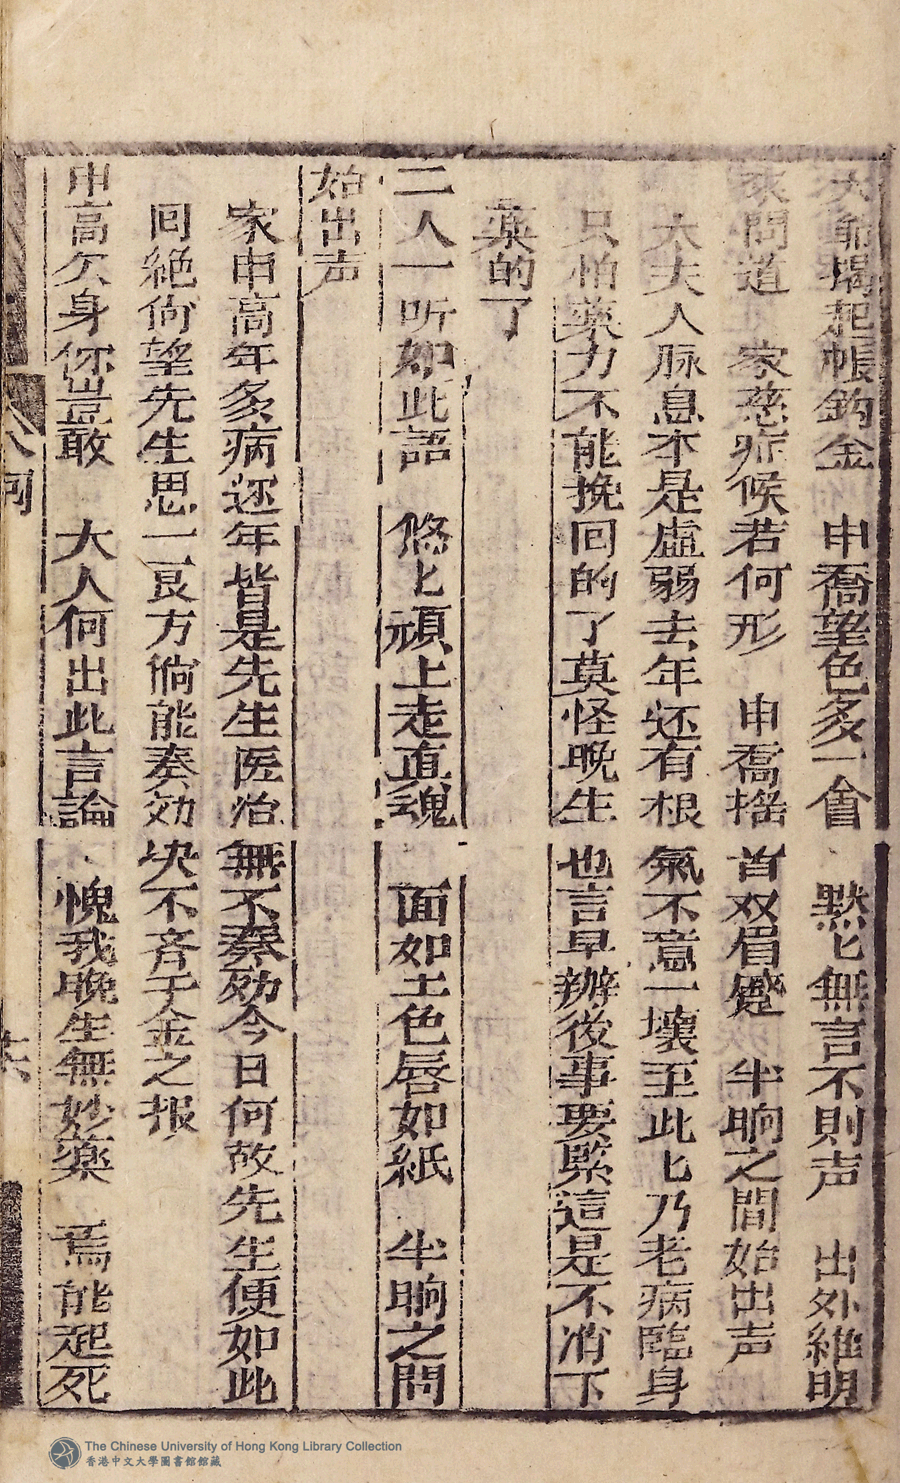 大爺揭起帳鈎金 申喬望色多一會 默匕無言不則声 出外維明
來問道 家慈症候若何形 申喬摇首双眉蹙 半晌之間始出声
大夫人脉息本是虛弱去年还有根氣不意一壞至此匕乃老病臨身
只怕藥力不能挽回的了莫怪晚生也言早辦後事要緊這是不消下
藥的了
二人一听如此語 悠匕頑上走眞魂 面如土色唇如紙 半晌之間
始出声
家申高年多病还年皆是先生医治無不奏効今日何故先生便如此
回絶尙望先生思一良方倘能奏効决不吝千金之报
申高欠身你豈敢 大人何出此言論 愧我晚生無妙藥 焉能起死
The Chinese University of Hong Kong Library Collection
香港中文大學圖書館館藏